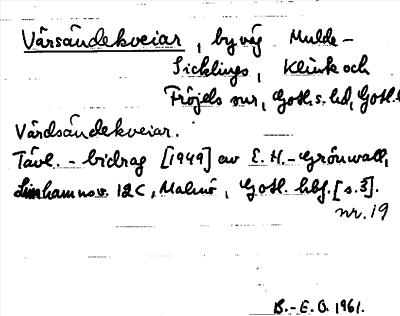 Vårsändekveiar, byväg Mulde-
Sicklings, Klinte och
Fröjels snr, Goth. s. hd, Gotl.
Vårdsändekveiar.
Tävl.-bidrag [1949] av E. H.-Grönwall,
Limhamnsv. 12C, Malmö, Gotl. hbf. [s.3].
nr. 19
B.-E. O. 1961.